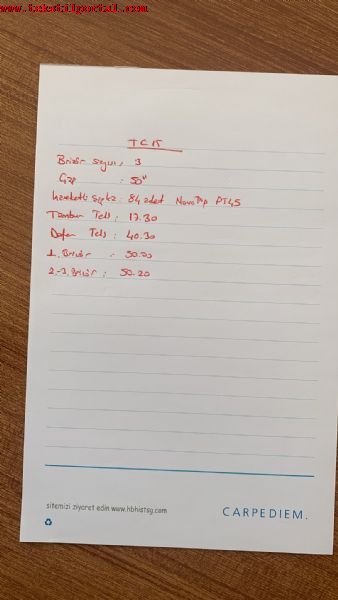 www.tekstilportal.com
TC 15
Brizör sayısı : 3
Çap : 50"
hareketli şapka : 84 adet Novo Top PT45
Tambur Teli : 17.30
Dofer Teli : 40.30
1. Brizör : 50.20
2-3. Brizör : 50.20
sitemizi ziyaret edin www.hbhistsg.com
CARPEDIEM.